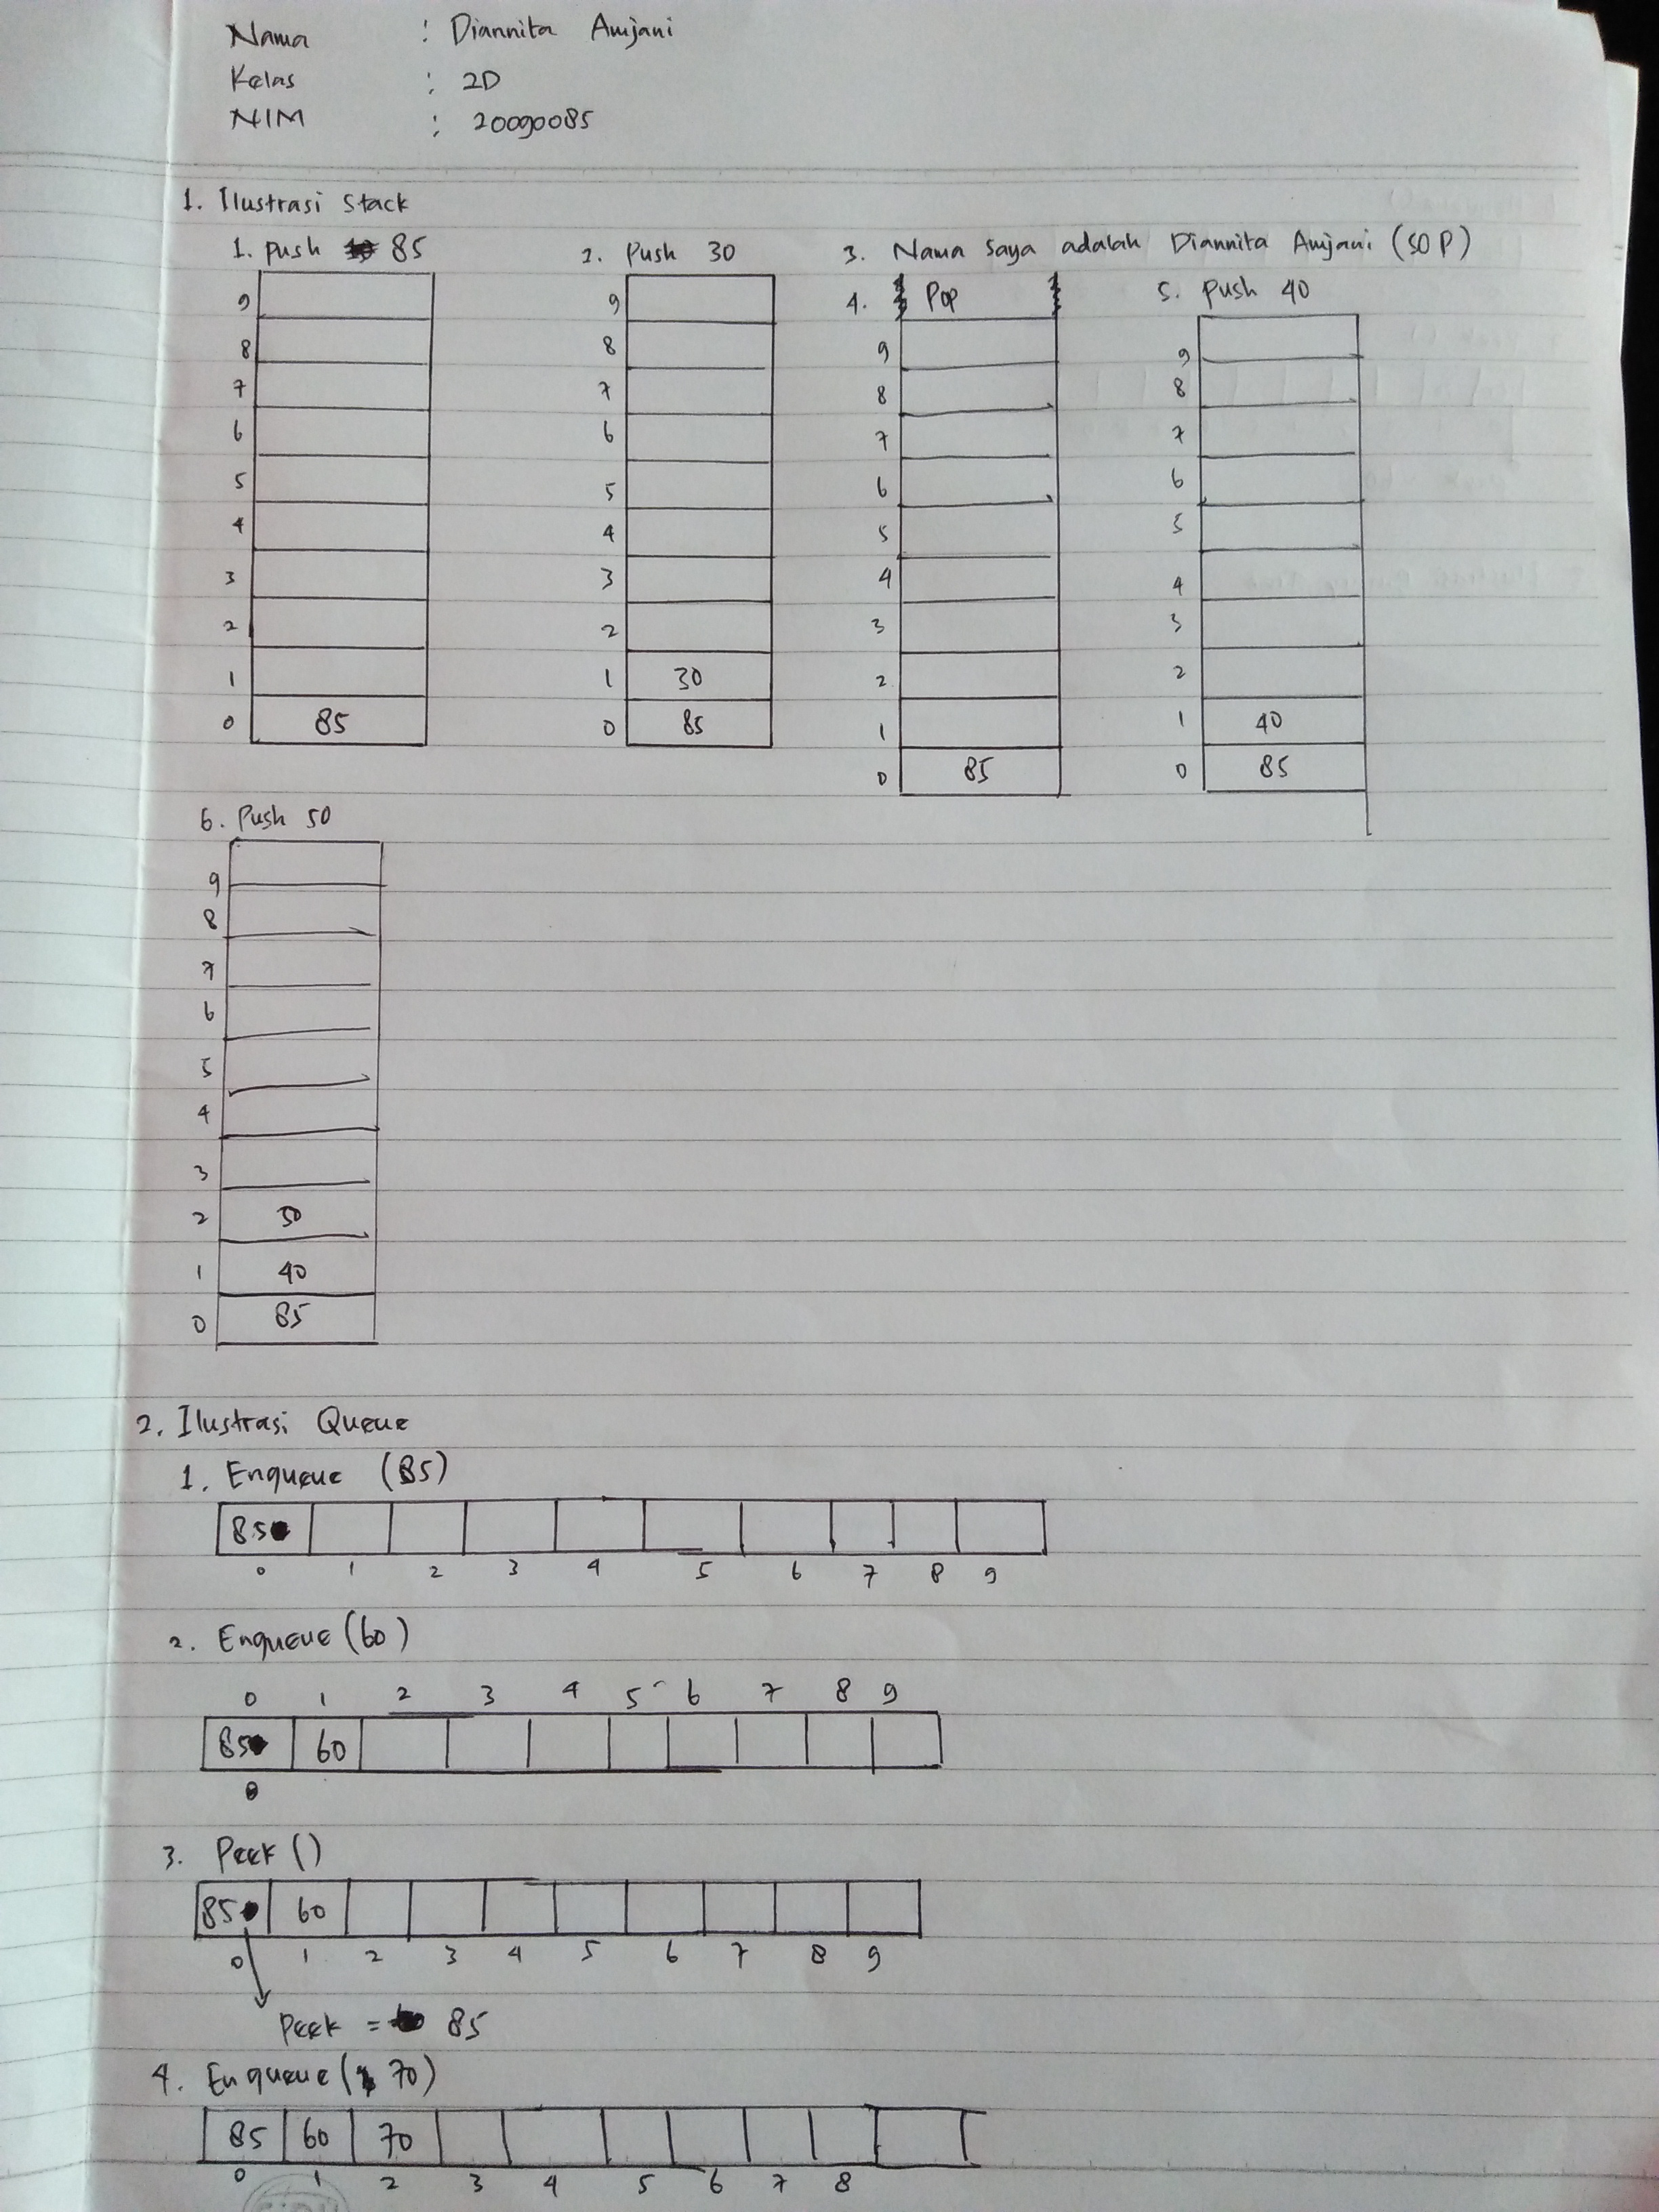 Nama : Diannita Anjani
Kelas : 2D
NIM : 20090085
1. Ilustrasi Stack
1. Push 85
2. Push 30
3. Nama saya adalah Diannita Anjani (SOP)
4. Pop
5. Push 40
9
8
7
6
5
4
3
2
1
0 85
9
8
7
6
5
4
3
2
1 30
0 85
9
8
7
6
5
4
3
2
1
0 85
9
8
7
6
5
4
3
2
1 40
0 85
6. Push 50
9
8
7
6
5
4
3
2 50
1 40
0 85
2. Ilustrasi Queue
1. Enqueue (85)
85
0 1 2 3 4 5 6 7 8 9
2. Enqueue (60)
0 1 2 3 4 5 6 7 8 9
85 60
0
3. Peek ()
85 60
0 1 2 3 4 5 6 7 8 9
Peek = 85
4. Enqueue (70)
85 60 70
0 1 2 3 4 5 6 7 8